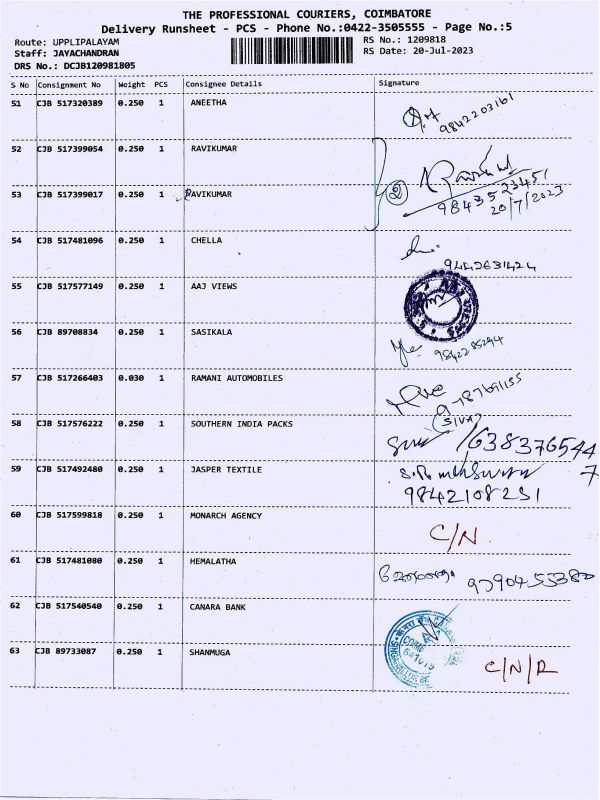 THE PROFESSIONAL COURIERS, COIMBATORE
Delivery Runsheet - PCS - Phone No.:0422-3505555 - Page No.:5
Route: UPPLIPALAYAM RS No.: 1209818
Staff: JAYACHANDRAN RS Date: 20-Jul-2023
DRS No.: DCJB120981805
S No Consignment No Weight PCS Consignee Details Signature
51 CJB 517320389 0.250 1 ANEETHA
9842203161
52 CJB 517399054 0.250 1 RAVIKUMAR
53 CJB 517399017 0.250 1 RAVIKUMAR
2
9843523451
20/7/2023
54 CJB 517481096 0.250 1 CHELLA
9442631424
55 CJB 517577149 0.250 1 AAJ VIEWS
56 CJB 89708834 0.250 1 SASIKALA
9842285294
57 CJB 517266403 0.030 1 RAMANI AUTOMOBILES
58 CJB 517576222 0.250 1 SOUTHERN INDIA PACKS
(SIVA)
6383765447
59 CJB 517492480 0.250 1 JASPER TEXTILE
9842108251
60 CJB 517599818 0.250 1 MONARCH AGENCY
C/N
61 CJB 517481080 0.250 1 HEMALATHA
9790455380
62 CJB 517540540 0.250 1 CANARA BANK
63 CJB 89733087 0.250 1 SHANMUGA
C/N/R